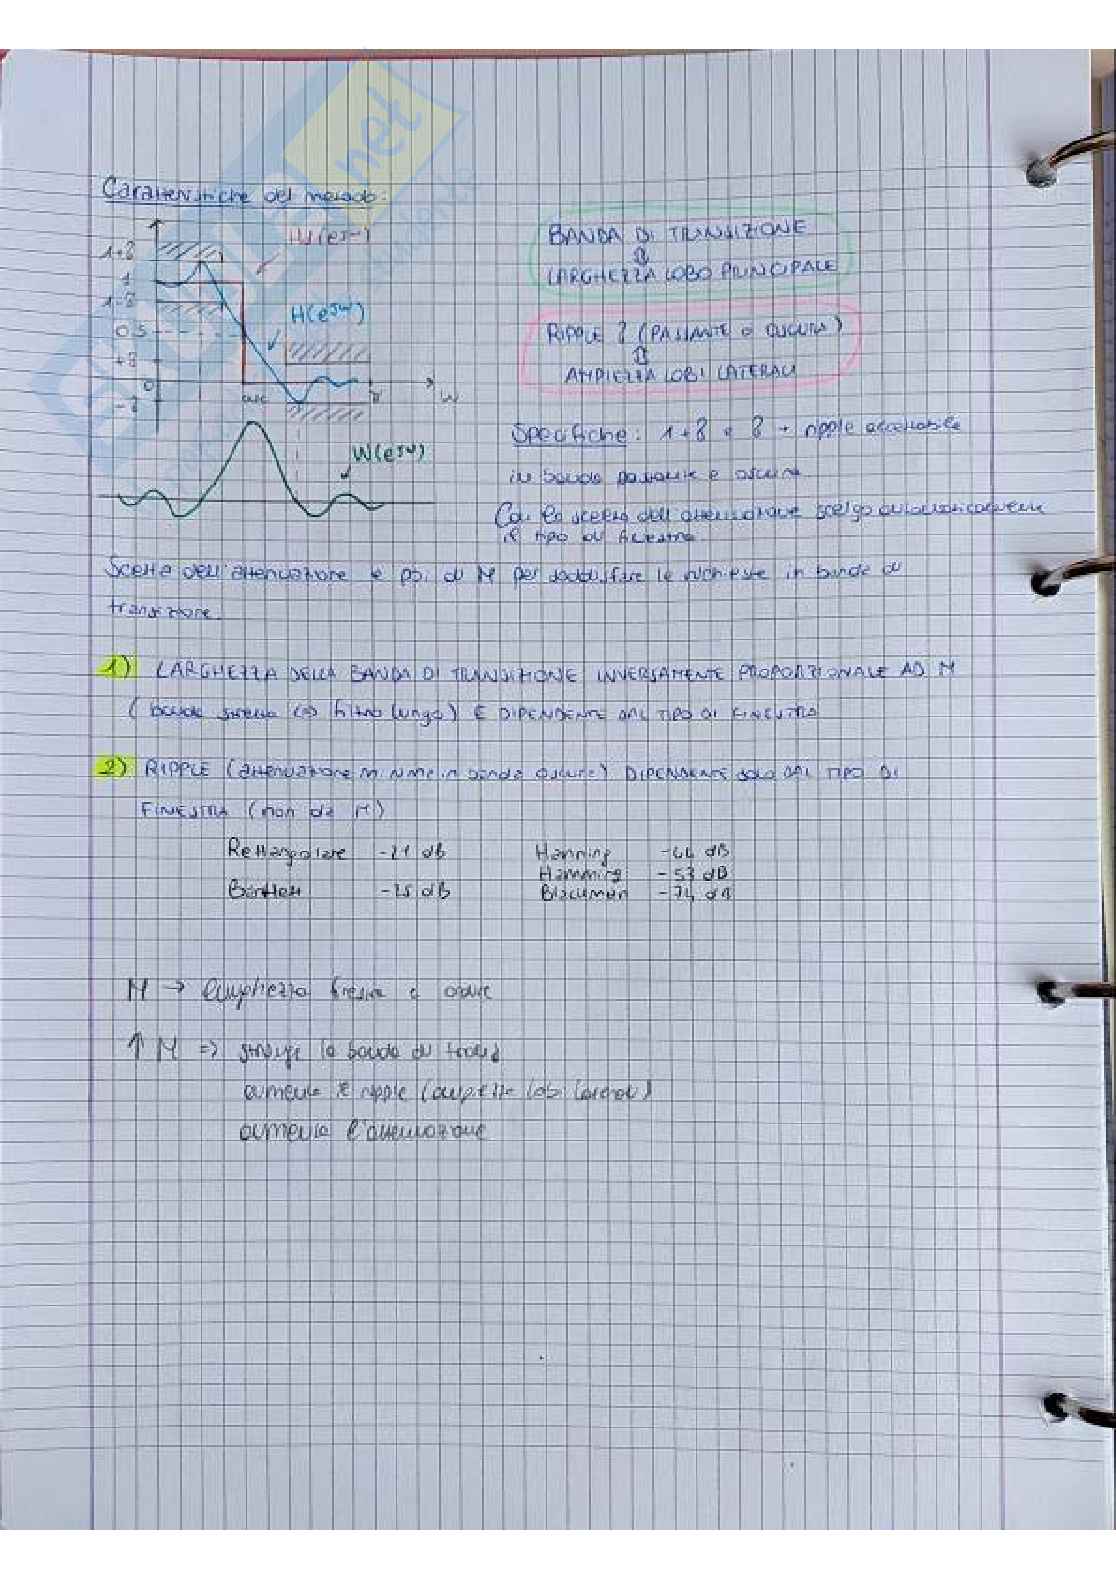 Caratteristiche del metodo:
Hd(e^jω)
1+δ
1
1-δ
0.5
+δ
0
-δ
H(e^jω)
ωc
π
ω
W(e^jω)
BANDA DI TRANSIZIONE
⇕
LARGHEZZA LOBO PRINCIPALE
RIPPLE δ (PASSANTE o OSCURA)
⇕
AMPIEZZA LOBI LATERALI
Specifiche: 1+δ e δ → ripple accettabile
in banda passante e oscura
Con la scelta dell'attenuazione scelgo automaticamente
il tipo di finestra.
Scelta dell'attenuazione e poi di M per soddisfare le richieste in banda di
transizione.
1) LARGHEZZA DELLA BANDA DI TRANSIZIONE INVERSAMENTE PROPORZIONALE AD M
(banda stretta ⇔ filtro lungo) E DIPENDENTE DAL TIPO DI FINESTRA
2) RIPPLE (attenuazione minima in banda oscura) DIPENDENTE solo DAL TIPO DI
FINESTRA (non da M)
Rettangolare -21 dB Hanning -44 dB
Hamming -53 dB
Bartlett -25 dB Blackman -74 dB
M → lunghezza finestra e ordine
↑ M => stringe la banda di
aumenta il ripple (ampiezza lobi laterali)
aumenta l'attenuazione
SKUOLA.net